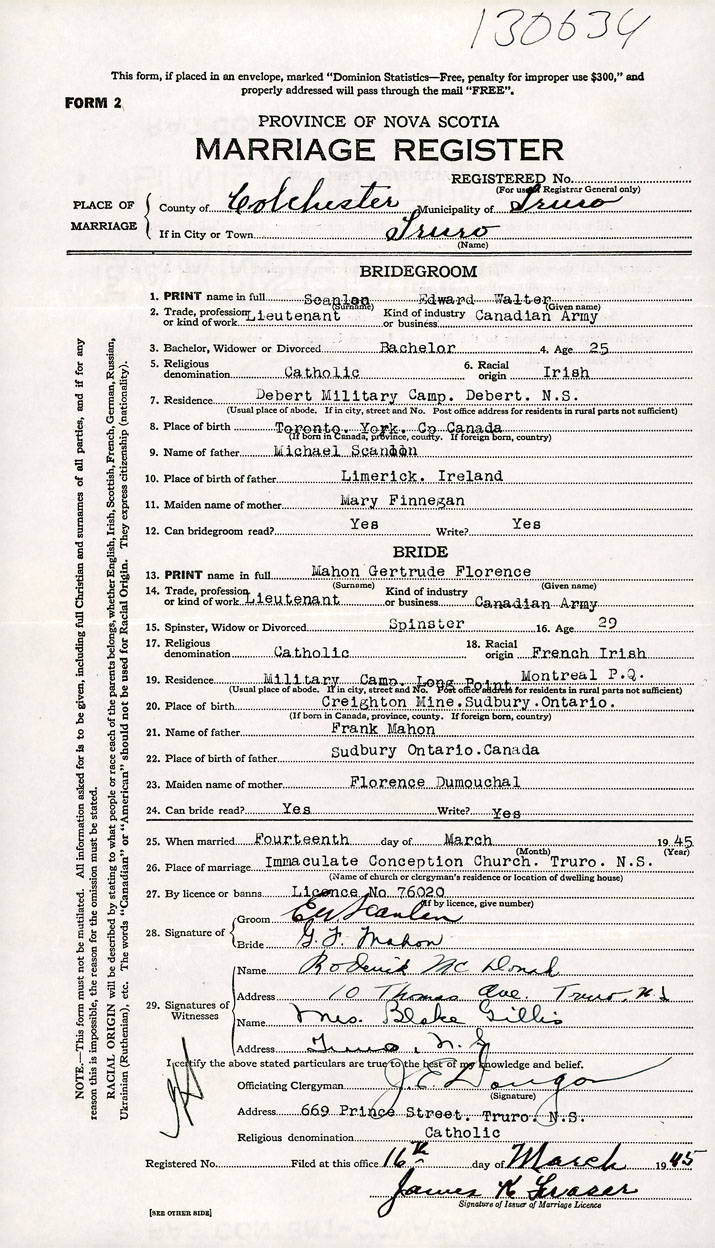 130634
This form, if placed in an envelope, marked "Dominion Statistics—Free, penalty for improper use $300," and
properly addressed will pass through the mail "FREE".
FORM 2
PROVINCE OF NOVA SCOTIA
MARRIAGE REGISTER
REGISTERED No.
(For use of Registrar General only)
PLACE OF MARRIAGE
County of Colchester Municipality of Truro
If in City or Town Truro
(Name)
BRIDEGROOM
1. PRINT name in full Scanlon Edward Walter
(Surname) (Given name)
2. Trade, profession or kind of work Lieutenant Kind of industry or business Canadian Army
3. Bachelor, Widower or Divorced Bachelor 4. Age 25
5. Religious denomination Catholic 6. Racial origin Irish
7. Residence Debert Military Camp. Debert. N.S.
(Usual place of abode. If in city, street and No. Post office address for residents in rural parts not sufficient)
8. Place of birth Toronto. York. Co Canada
(If born in Canada, province, county. If foreign born, country)
9. Name of father Michael Scanlon
10. Place of birth of father Limerick. Ireland
11. Maiden name of mother Mary Finnegan
12. Can bridegroom read? Yes Write? Yes
BRIDE
13. PRINT name in full Mahon Gertrude Florence
(Surname) (Given name)
14. Trade, profession or kind of work Lieutenant Kind of industry or business Canadian Army
15. Spinster, Widow or Divorced Spinster 16. Age 29
17. Religious denomination Catholic 18. Racial origin French Irish
19. Residence Military Camp. Long Point Montreal P.Q.
(Usual place of abode. If in city, street and No. Post office address for residents in rural parts not sufficient)
20. Place of birth Creighton Mine.Sudbury.Ontario.
(If born in Canada, province, county. If foreign born, country)
21. Name of father Frank Mahon
22. Place of birth of father Sudbury Ontario.Canada
23. Maiden name of mother Florence Dumouchal
24. Can bride read? Yes Write? Yes
25. When married Fourteenth day of March 1945
(Month) (Year)
26. Place of marriage Immaculate Conception Church. Truro. N.S.
(Name of church or clergyman's residence or location of dwelling house)
27. By licence or banns Licence No 76020
(If by licence, give number)
28. Signature of
Groom EW Scanlon
Bride G. F. Mahon
29. Signatures of Witnesses
Name Roderick Mc
Address 10 Thomas Ave. Truro, N.S
Name Mrs. Blake Gillis
Address Truro, N.S
I certify the above stated particulars are true to the best of my knowledge and belief.
Officiating Clergyman J. E.
(Signature)
Address 669 Prince Street. Truro. N.S.
Religious denomination Catholic
Registered No. Filed at this office 16th day of March 1945
James K Fraser
Signature of Issuer of Marriage Licence
[SEE OTHER SIDE]
NOTE.—This form must not be mutilated. All information asked for is to be given, including full Christian and surnames of all parties, and if for any
reason this is impossible, the reason for the omission must be stated.
RACIAL ORIGIN will be described by stating to what people or race each of the parents belongs, whether English, Irish, Scottish, French, German, Russian,
Ukrainian (Ruthenian), etc. The words "Canadian" or "American" should not be used for Racial Origin. They express citizenship (nationality).